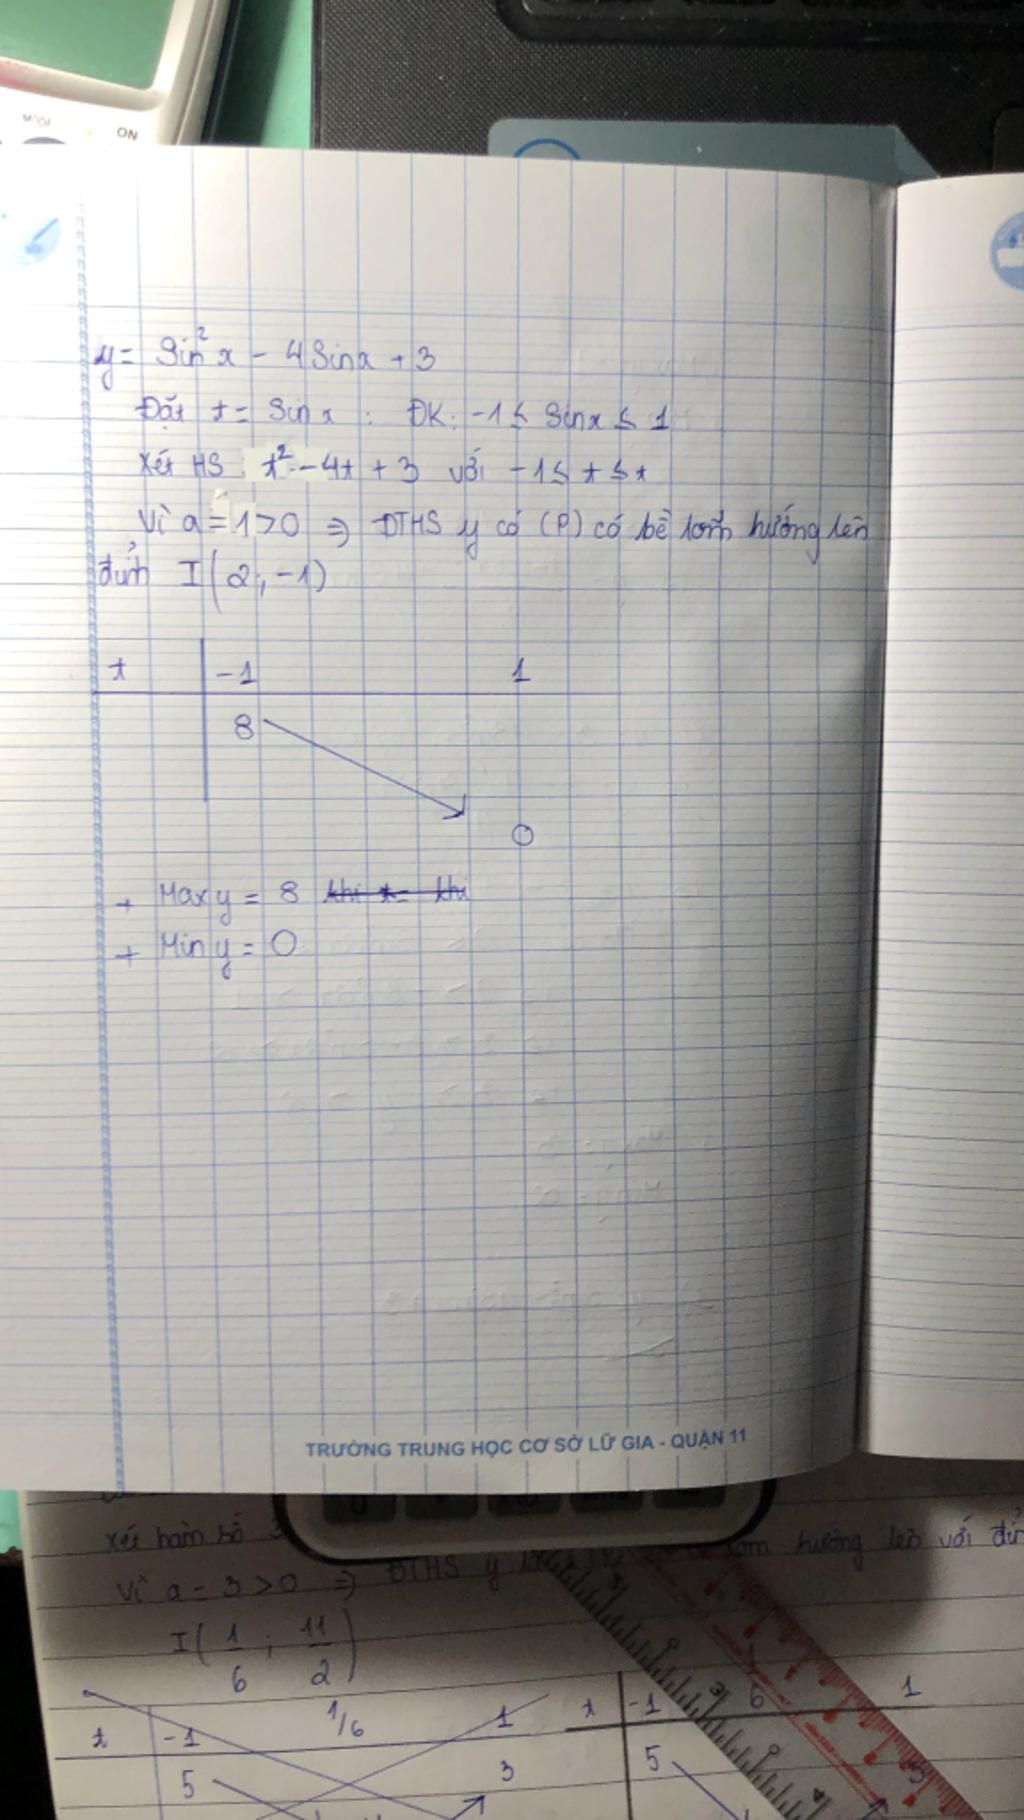 ON
y = Sin²x - 4Sinx + 3
Đặt t = Sin x : ĐK: -1 ≤ Sinx ≤ 1
Xét HS t² - 4t + 3 với -1 ≤ t ≤ t
Vì a = 1 > 0 ⇒ ĐTHS y có (P) có bề lõm hướng lên
đỉnh I(2; -1)
t -1 1
8
0
+ Max y = 8 khi t = khi
+ Min y = 0
TRƯỜNG TRUNG HỌC CƠ SỞ LỮ GIA - QUẬN 11
Xét hàm số hướng lên với
Vì a = 3 > 0 ⇒ ĐTHS y
I(1/6 ; 11/2)
t -1 1/6 1 t -1 6 1
5 3 5